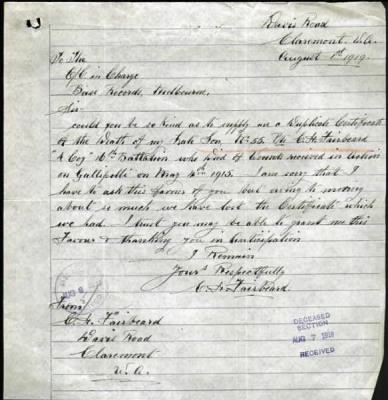 Davis Road
Claremont. W.A.
August 1st 1919.
To The
O/C in Charge
Base Records, Melbourne,
Sir
could you be so kind as to supply me a Duplicate Certificate
of the Death of my Late Son, No 55. Pte C. H. Fairbeard
"A Coy" 16th Battalion who Died of Wounds received in Action
on Gallipolli on May 4th 1915. I am sorry that I
have to ask this favour of you but owing to moving
about so much we have lost the Certificate which
we had. I trust you may be able to grant me this
Favour & thanking you in Anticipation
I Remain
Yours Respectfully
C. H. Fairbeard.
From
C. H. Fairbeard
Davis Road
Claremont
W.A.
AUG 6
DECEASED
SECTION
AUG 7 1919
RECEIVED